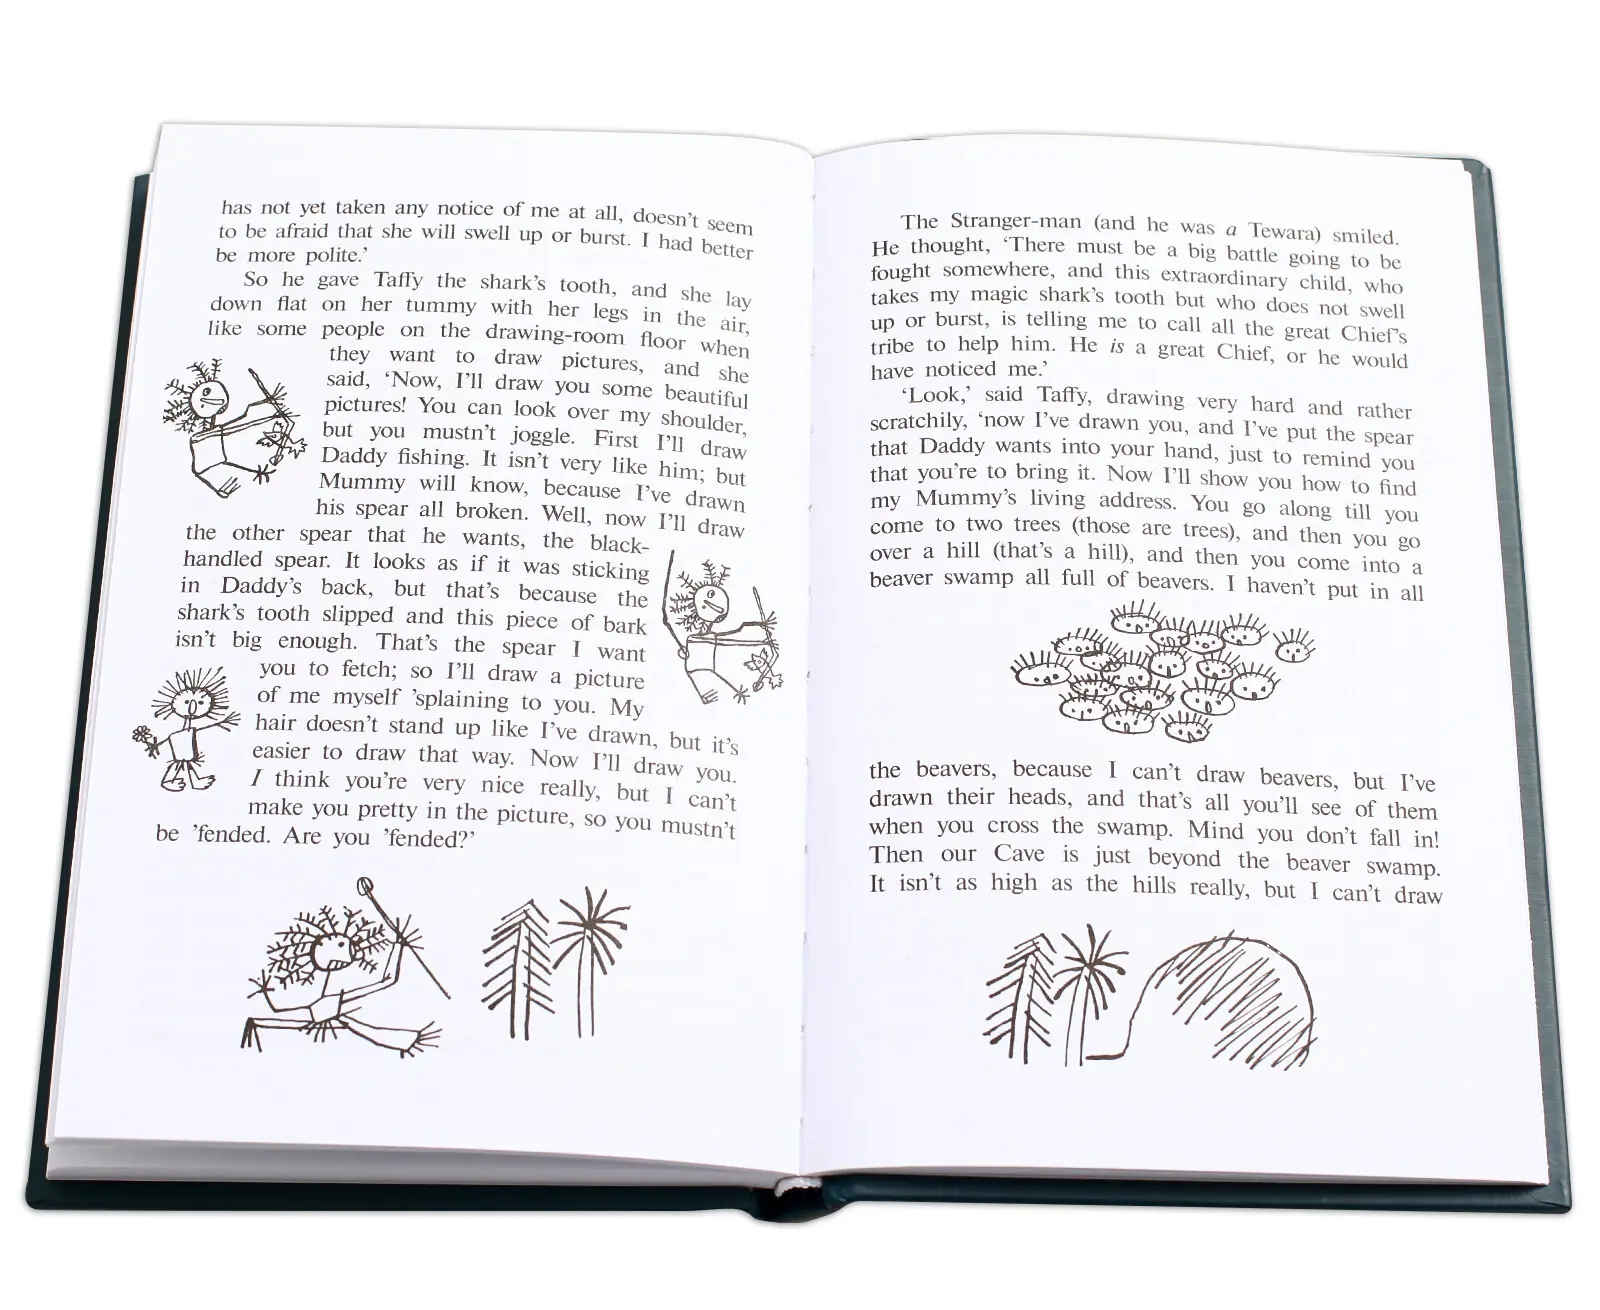 has not yet taken any notice of me at all, doesn't seem
to be afraid that she will swell up or burst. I had better
be more polite.’
So he gave Taffy the shark's tooth, and she lay
down flat on her tummy with her legs in the air,
like some people on the drawing-room floor when
they want to draw pictures, and she
said, ‘Now, I'll draw you some beautiful
pictures! You can look over my shoulder,
but you mustn't joggle. First I'll draw
Daddy fishing. It isn't very like him; but
Mummy will know, because I've drawn
his spear all broken. Well, now I'll draw
the other spear that he wants, the black-
handled spear. It looks as if it was sticking
in Daddy's back, but that's because the
shark's tooth slipped and this piece of bark
isn't big enough. That's the spear I want
you to fetch; so I'll draw a picture
of me myself ’splaining to you. My
hair doesn't stand up like I've drawn, but it's
easier to draw that way. Now I'll draw you.
I think you're very nice really, but I can't
make you pretty in the picture, so you mustn't
be ’fended. Are you ’fended?’
The Stranger-man (and he was a Tewara) smiled.
He thought, ‘There must be a big battle going to be
fought somewhere, and this extraordinary child, who
takes my magic shark's tooth but who does not swell
up or burst, is telling me to call all the great Chief's
tribe to help him. He is a great Chief, or he would
have noticed me.’
‘Look,’ said Taffy, drawing very hard and rather
scratchily, ‘now I've drawn you, and I've put the spear
that Daddy wants into your hand, just to remind you
that you're to bring it. Now I'll show you how to find
my Mummy's living address. You go along till you
come to two trees (those are trees), and then you go
over a hill (that's a hill), and then you come into a
beaver swamp all full of beavers. I haven't put in all
the beavers, because I can't draw beavers, but I've
drawn their heads, and that's all you'll see of them
when you cross the swamp. Mind you don't fall in!
Then our Cave is just beyond the beaver swamp.
It isn't as high as the hills really, but I can't draw